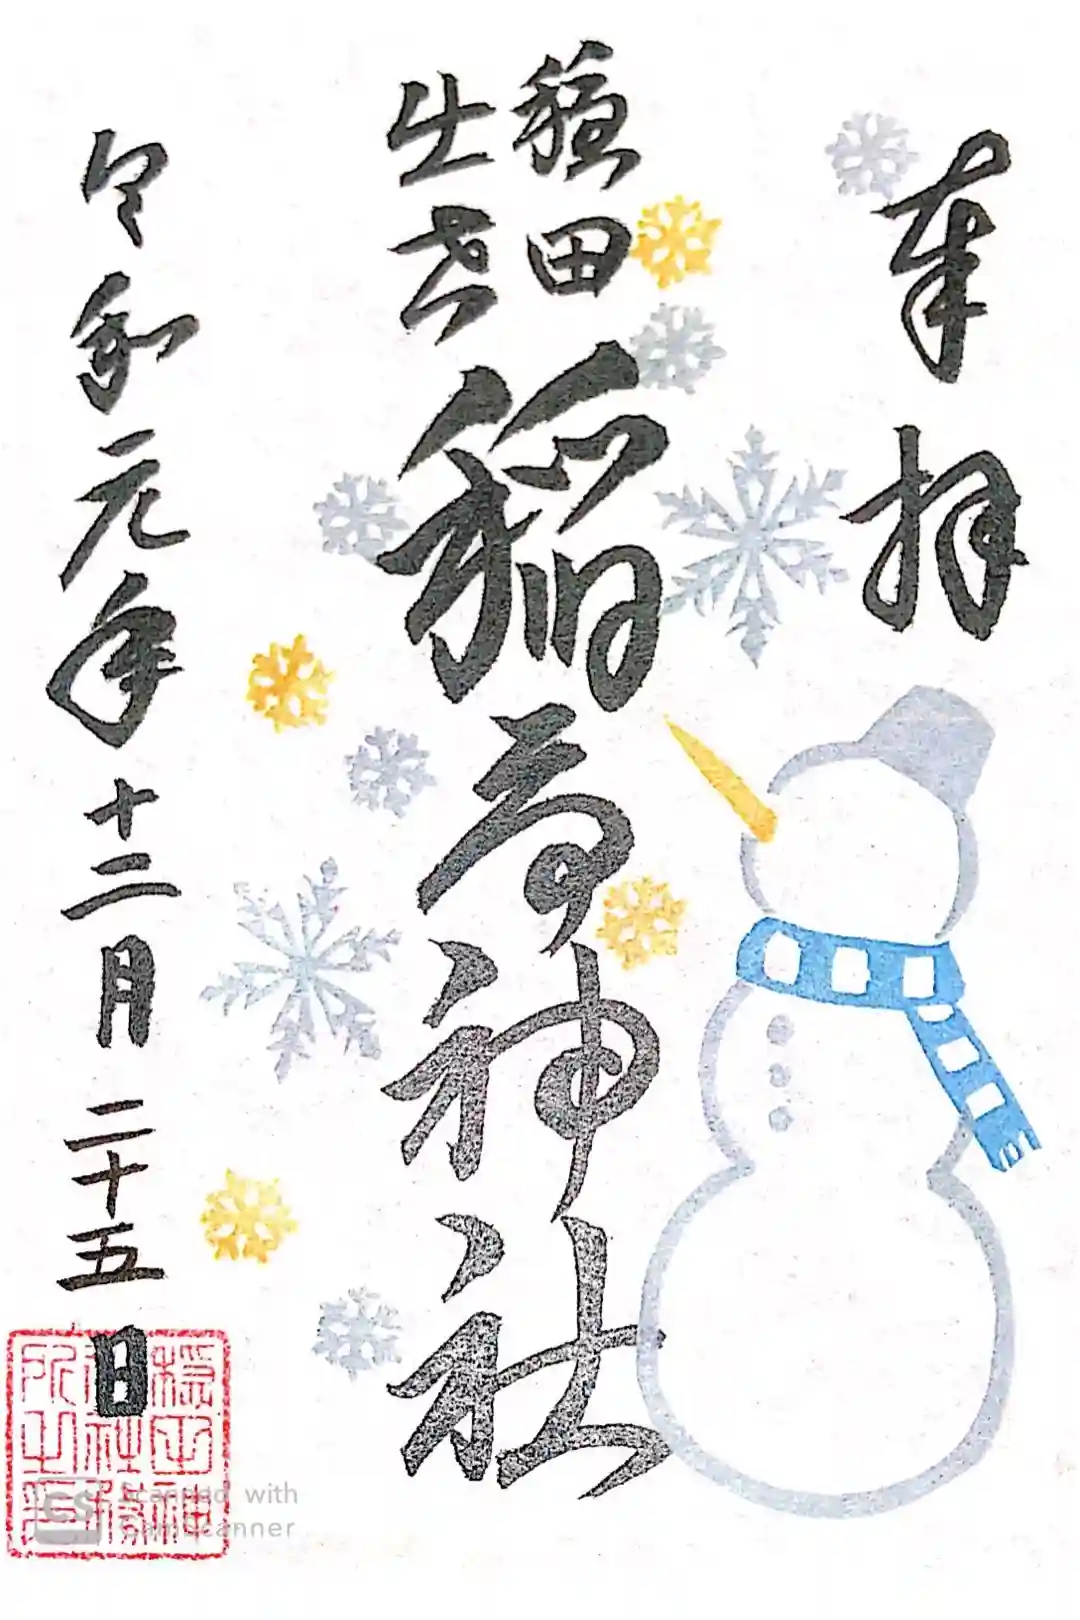 奉拝
穏田
出世
稲荷神社
令和元年十二月二十五日
Scanned with
CamScanner